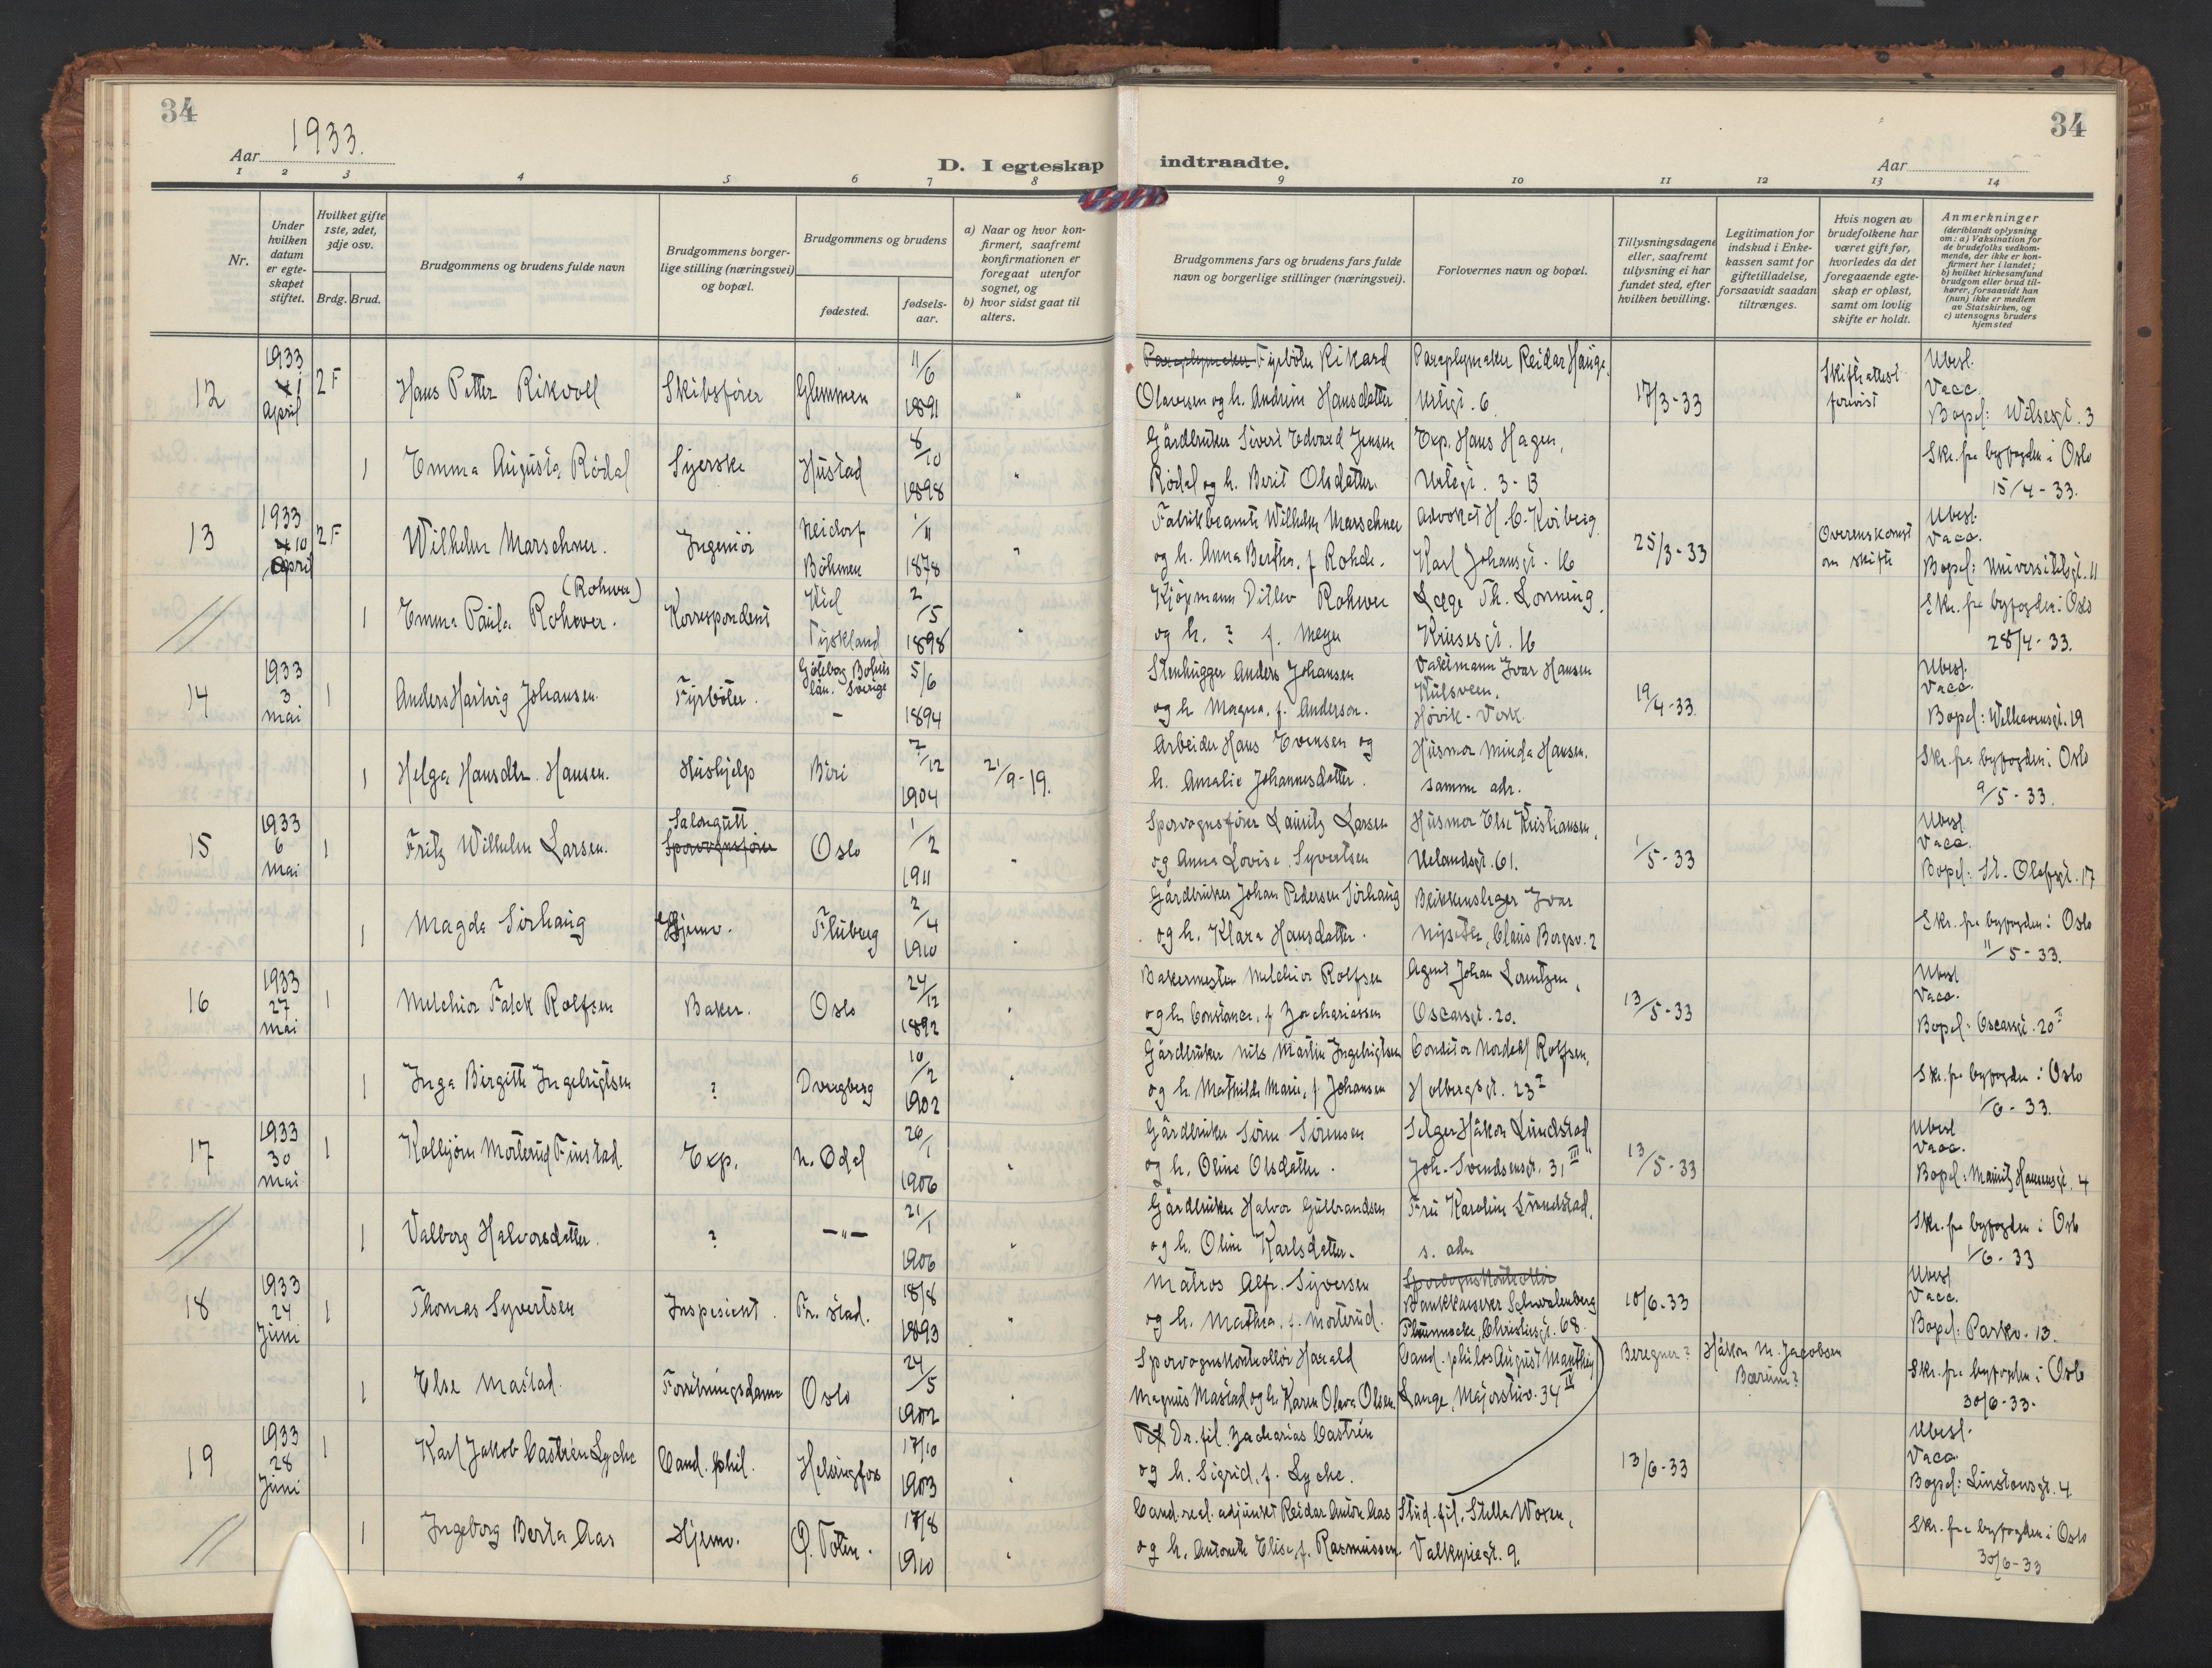 34
1933.
Aar
D. I egteskap
1 2 3 4 5 6 7 8
Nr.
Under hvilken datum er egteskapet stiftet.
Hvilket gifte 1ste, 2det, 3dje osv.
Brdg. Brud.
Brudgommens og brudens fulde navn
Brudgommens borgerlige stilling (næringsvei) og bopæl.
Brudgommens og brudens
fødested.
fødselsaar.
a) Naar og hvor konfirmert, saafremt konfirmationen er foregaat utenfor sognet, og
b) hvor sidst gaat til alters.
12 1933 1 april 2 F Hans Petter Rikvoll Skibsfører Glemmen 11/6 1891 "
1 Emma Augusta Rødal Syerske Hustad 8/10 1898 "
13 1933 10 April 2 F Wilhelm Marschner. Ingeniør Neidorf Böhmen 1/11 1878 "
(Rohwer)
1 Emma Paula Rohwer. Korrespondent Kiel Tyskland 2/5 1898 "
14 1933 3 mai 1 Anders Hartvig Johansen. Fyrbøter. Göteborg Bohus län. Sverige 5/6 1894
1 Helga Hansdtr. Hansen. Hushjelp Biri 2/12 1904 21/9-19.
15 1933 6 mai 1 Fritz Wilhelm Larsen. Salongutt Sporvognsfører Oslo 1/2 1911 "
1 Magda Sørhaug Hjemv. Fluberg 2/4 1910 "
16 1933 27 mai 1 Melchior Falck Rolfsen Baker. Oslo 24/12 1892 "
1 Inga Birgitte Ingebrigtsen ? Dvergberg 10/2 1902 "
17 1933 30 mai 1 Kolbjørn Morterud Finstad. Exp. N. Odal 26/1 1906 "
1 Valborg Halvorsdatter. ? —"— 21/1 1906 "
18 1933 24 Juni 1 Thomas Syvertsen Inspisient. Fr.stad. 18/8 1893 "
1 Else Mastad. Forretningsdame Oslo 24/5 1902 "
19 1933 28 Juni 1 Karl Jakob Castrén Lyche Cand. phil. Helsingfors 17/10 1903 "
1 Ingeborg Berta Aas Hjemv. Ø. Toten. 17/8 1910 "
34
indtraadte.
Aar
9 10 11 12 13 14
Brudgommens fars og brudens fars fulde navn og borgerlige stillinger (næringsvei).
Forlovernes navn og bopæl.
Tillysningsdagene eller, saafremt tillysning ei har fundet sted, efter hvilken bevilling.
Legitimation for indskud i Enkekassen samt for giftetilladelse, forsaavidt saadan tiltrænges.
Hvis nogen av brudefolkene har været gift før, hvorledes da det foregaaende egteskap er opløst, samt om lovlig skifte er holdt.
Anmerkninger
(deriblandt oplysning om: a) Vaksination for de brudefolks vedkommende, der ikke er konfirmert her i landet; b) hvilket kirkesamfund brudgom eller brud tilhører, forsaavidt han (hun) ikke er medlem av Statskirken, og c) utensogns bruders hjemsted
Paraplymaker Fyrbøter Rikard Paraplymaker Reidar Hauge, Skifteattest Ubesl.
Olavesen og h. Andrine Hansdatter Urtegt. 6 17/3-33 forevist Vacc.
Bopel: Wilsesgt. 3
Gårdbruker Sivert Edvard Jensen Exp. Hans Hagen, Skr. fra byfogden i Oslo
Rødal og h. Berit Olsdatter. Urtegt. 3-B 15/4-33.
Fabrikbeamte Wilhelm Marschner Advokat H. C. Koibeig Overenskomst Ubesl. Vacc.
og h. Anna Bertha, f. Rohde. Karl Johansgt. 16 25/3-33 om skifte Bopel: Universitetsgt. 11
Kjøpmann Ditlev Rohwer Læge Th. Lonning, Skr. fra byfogden i Oslo
og h. ? f. Meyer Krusesgt. 16 28/4-33.
Stenhugger Anders Johansen Vaktmann Ivar Hansen Ubesl. Vacc.
og h. Magna, f. Anderson. Høvik-Verk. 19/4-33. Bopel: Welhavensgt. 19
Arbeider Hans Evensen og Husmor Minda Hansen. Skr. fra byfogden i Oslo
h. Amalie Johannesdatter. samme adr. 9/5-33.
Sporvognsfører Lauritz Larsen Husmor Else Kristiansen, Ubesl. Vacc.
og Anna Lovise Syvertsen Uelandsgt. 61. 1/5-33 Bopel: St. Olafsgt. 17
Gårdbruker Johan Pedersen Sørhaug Blikkenslager Ivar Skr. fra byfogden i Oslo
og h. Klara Hansdatter. Nyseter, Claus Borgsv. 2 11/5-33.
Bakermester Melchior Rolfsen Agent Johan Lorentzen, Ubesl. Vacc.
og h. Constance, f. Zachariassen Oscarsgt. 20. 13/5-33 Bopel: Oscarsgt. 20 I
Gårdbruker Nils Martin Ingebrigtsen Conditor Nordahl Rolfsen, Skr. fra byfogden i Oslo
og h. Mathilde Marie, f. Johansen Holbergsgt. 23 I 1/6-33.
Gårdbruker Søren Sørensen Selger Håkon Lundstad Ubesl. Vacc.
og h. Oline Olsdatter. Joh. Svendsensgt. 31 III 13/5-33 Bopel: Mauritz Hansensgt. 4
Gårdbruker Halvor Gulbrandsen Fru Karoline Lundstad, Skr. fra byfogden i Oslo
og h. Oline Karlsdatter. s. adr. 1/6-33
Matros Alfr. Syversen Sporvognskontrollør Ubesl. Vacc.
og h. Mathea, f. Morterud. Bankkasserer Schwalenberg 10/6-33
Christiesgt. 68. Bopel: Parkv. 13.
Sporvognskontrollør Harald Cand. philos August Manthey Beregner? Håkon M. Jacobsen Skr. fra byfogden i Oslo
Magnus Mastad og h. Karen Olava Olsen Lange, Majorstuv. 34 IV Bærum? 30/6-33.
Dr. fil. Zacharias Castrén Ubesl. Vacc.
og h. Sigrid, f. Lyche. 13/6-33 Bopel: Linstowsgt. 4
Cand. real. adjunkt Reidar Anton Aas Stud. fil. Stella Woxen, Skr. fra byfogden i Oslo
og h. Antonette Elise, f. Rasmussen Valkyriegt. 9. 30/6-33